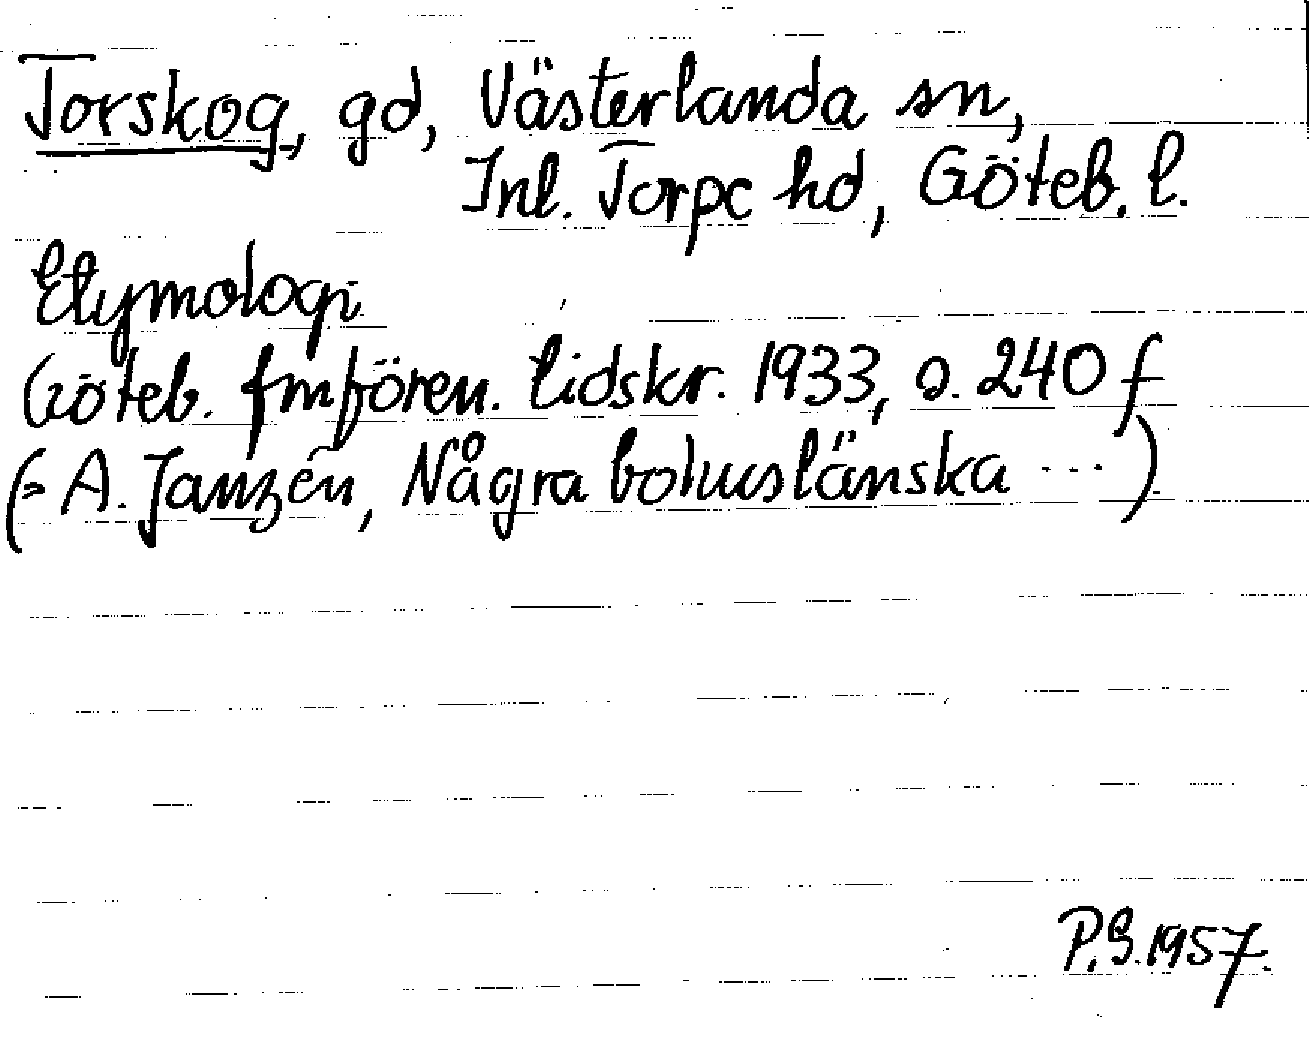 Torskog, gd, Västerlanda sn,
Inl. Torpe hd, Göteb. l.
Etymologi
Göteb. fmfören. tidskr. 1933, s. 240 f
(= A. Janzén, Några bohuslänska ...)
P.S. 1957.